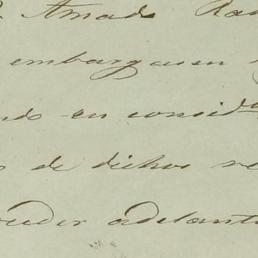 Amado Ra
embarquen
do en consid
de dichos re
ceder adelant